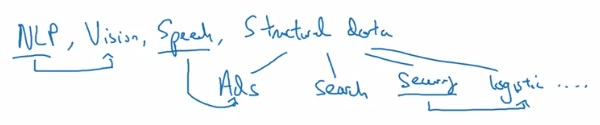 NLP, Vision, Speech, Structural data
Ads search Security logistic ....